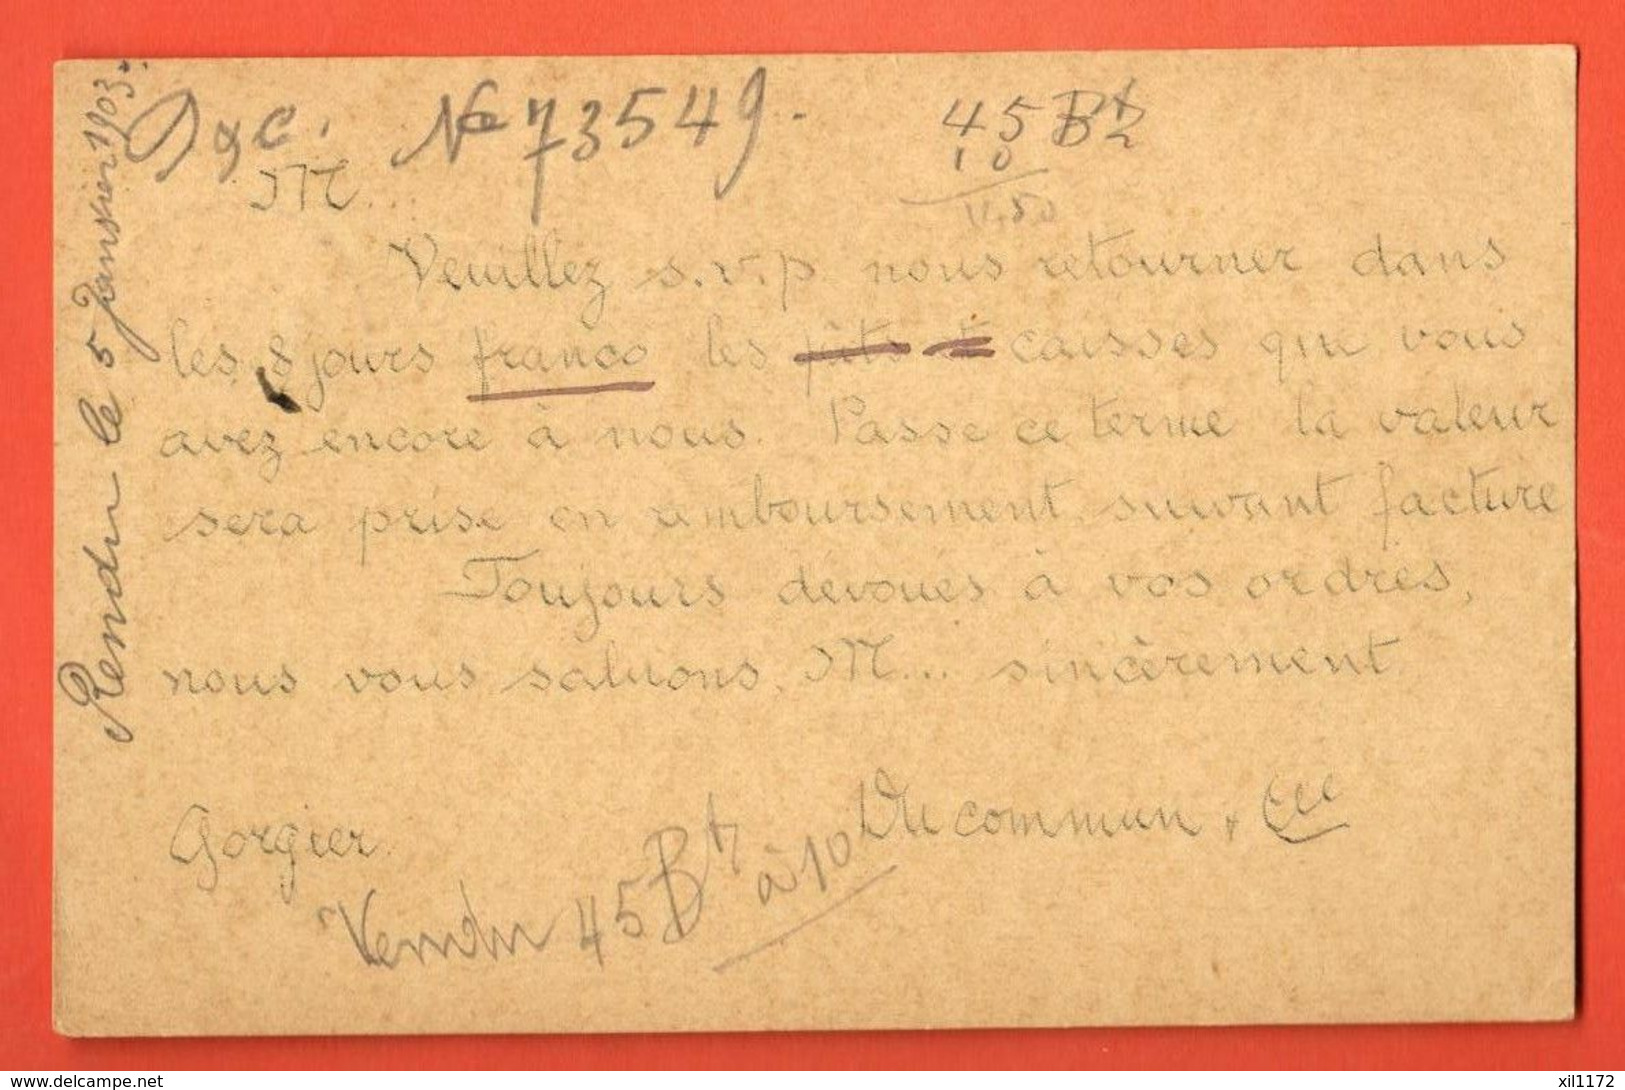 Rendu le 5 Janvier 1903.
Dgc. No 73549.
45 Bt
10
M...
Veuillez s.v.p. nous retourner dans
les 8 jours franco les caisses que vous
avez encore à nous. Passé ce terme la valeur
sera prise en remboursement suivant facture
Toujours dévoués à vos ordres,
nous vous saluons, M... sincèrement
Gorgier.
Ducommun & Cie
Vendu 45 Bt à 10
delcampe.net
xil1172